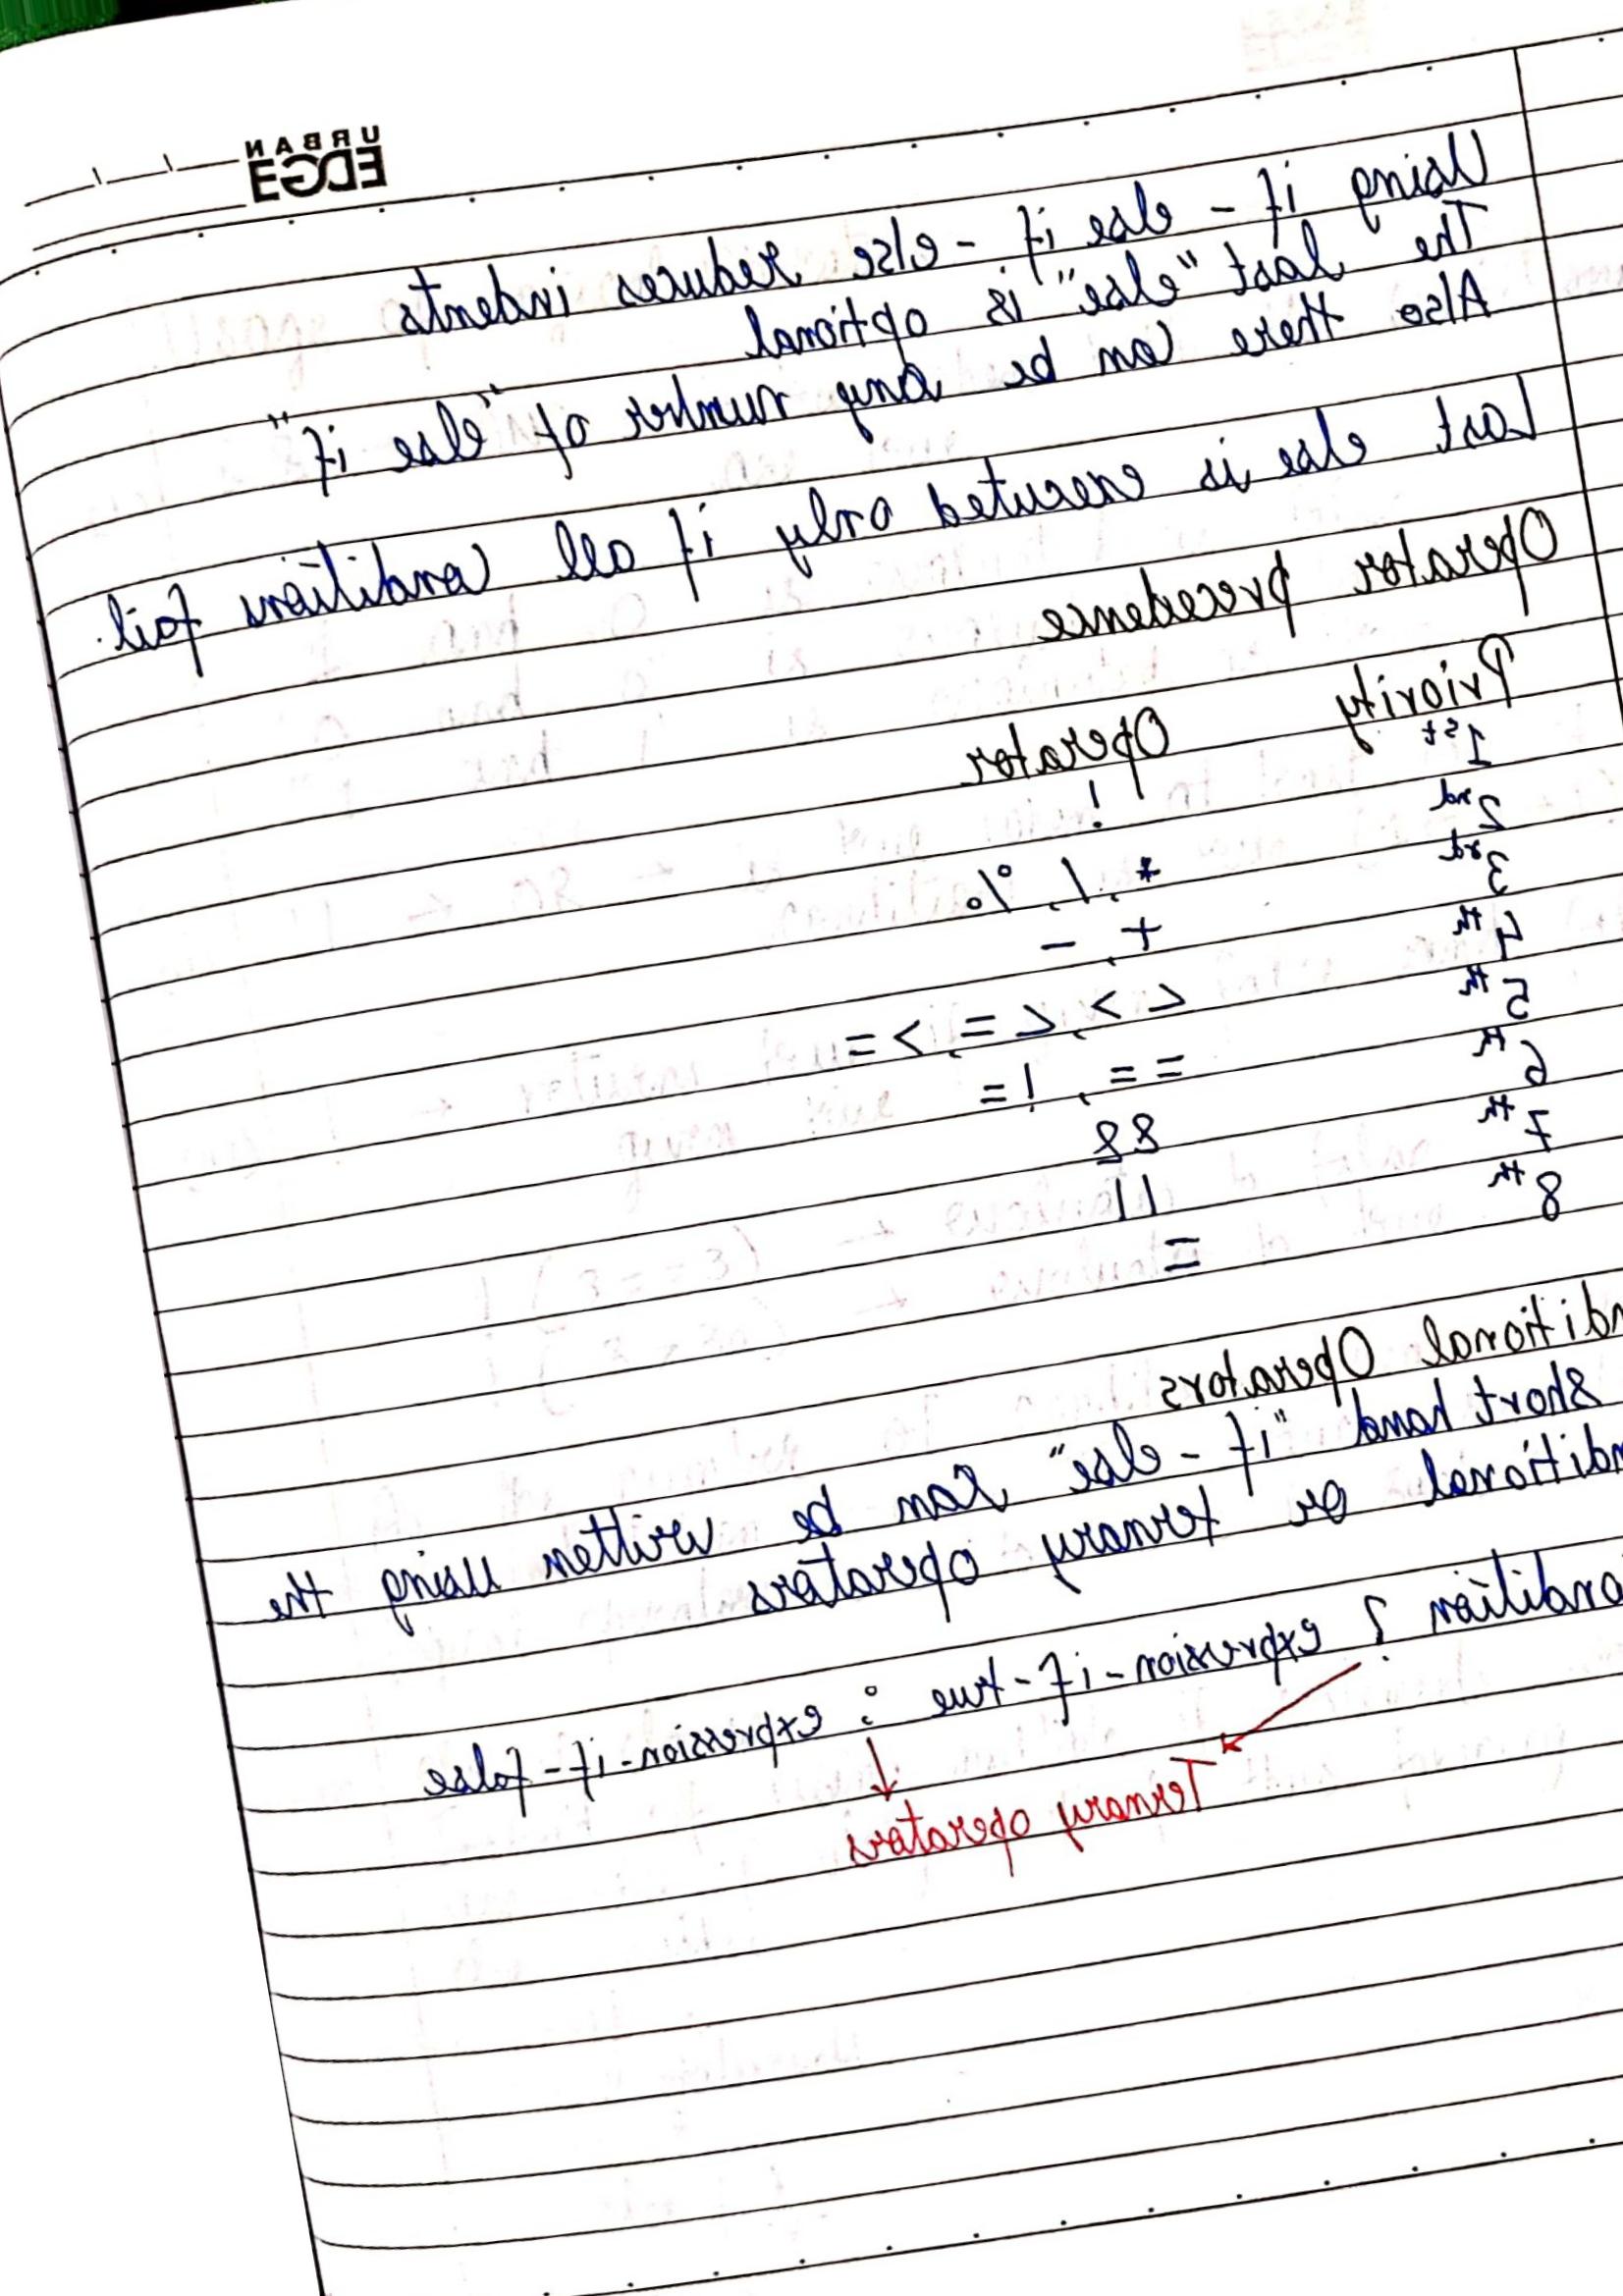 URBAN
EDGE
Using if - else if - else reduces indents
The last "else" is optional
Also there can be any number of "else if"
Last else is executed only if all conditions fail.
Operator precedence
Priority Operator
1st !
2nd *, /, %
3rd +, -
4th < >, <=, >=
5th ==, !=
6th &&
7th ||
8th =
nditional Operators
short hand "if - else" can be written using the
nditional or ternary operators
ondition ? expression-if-true : expression-if-false
Ternary operators